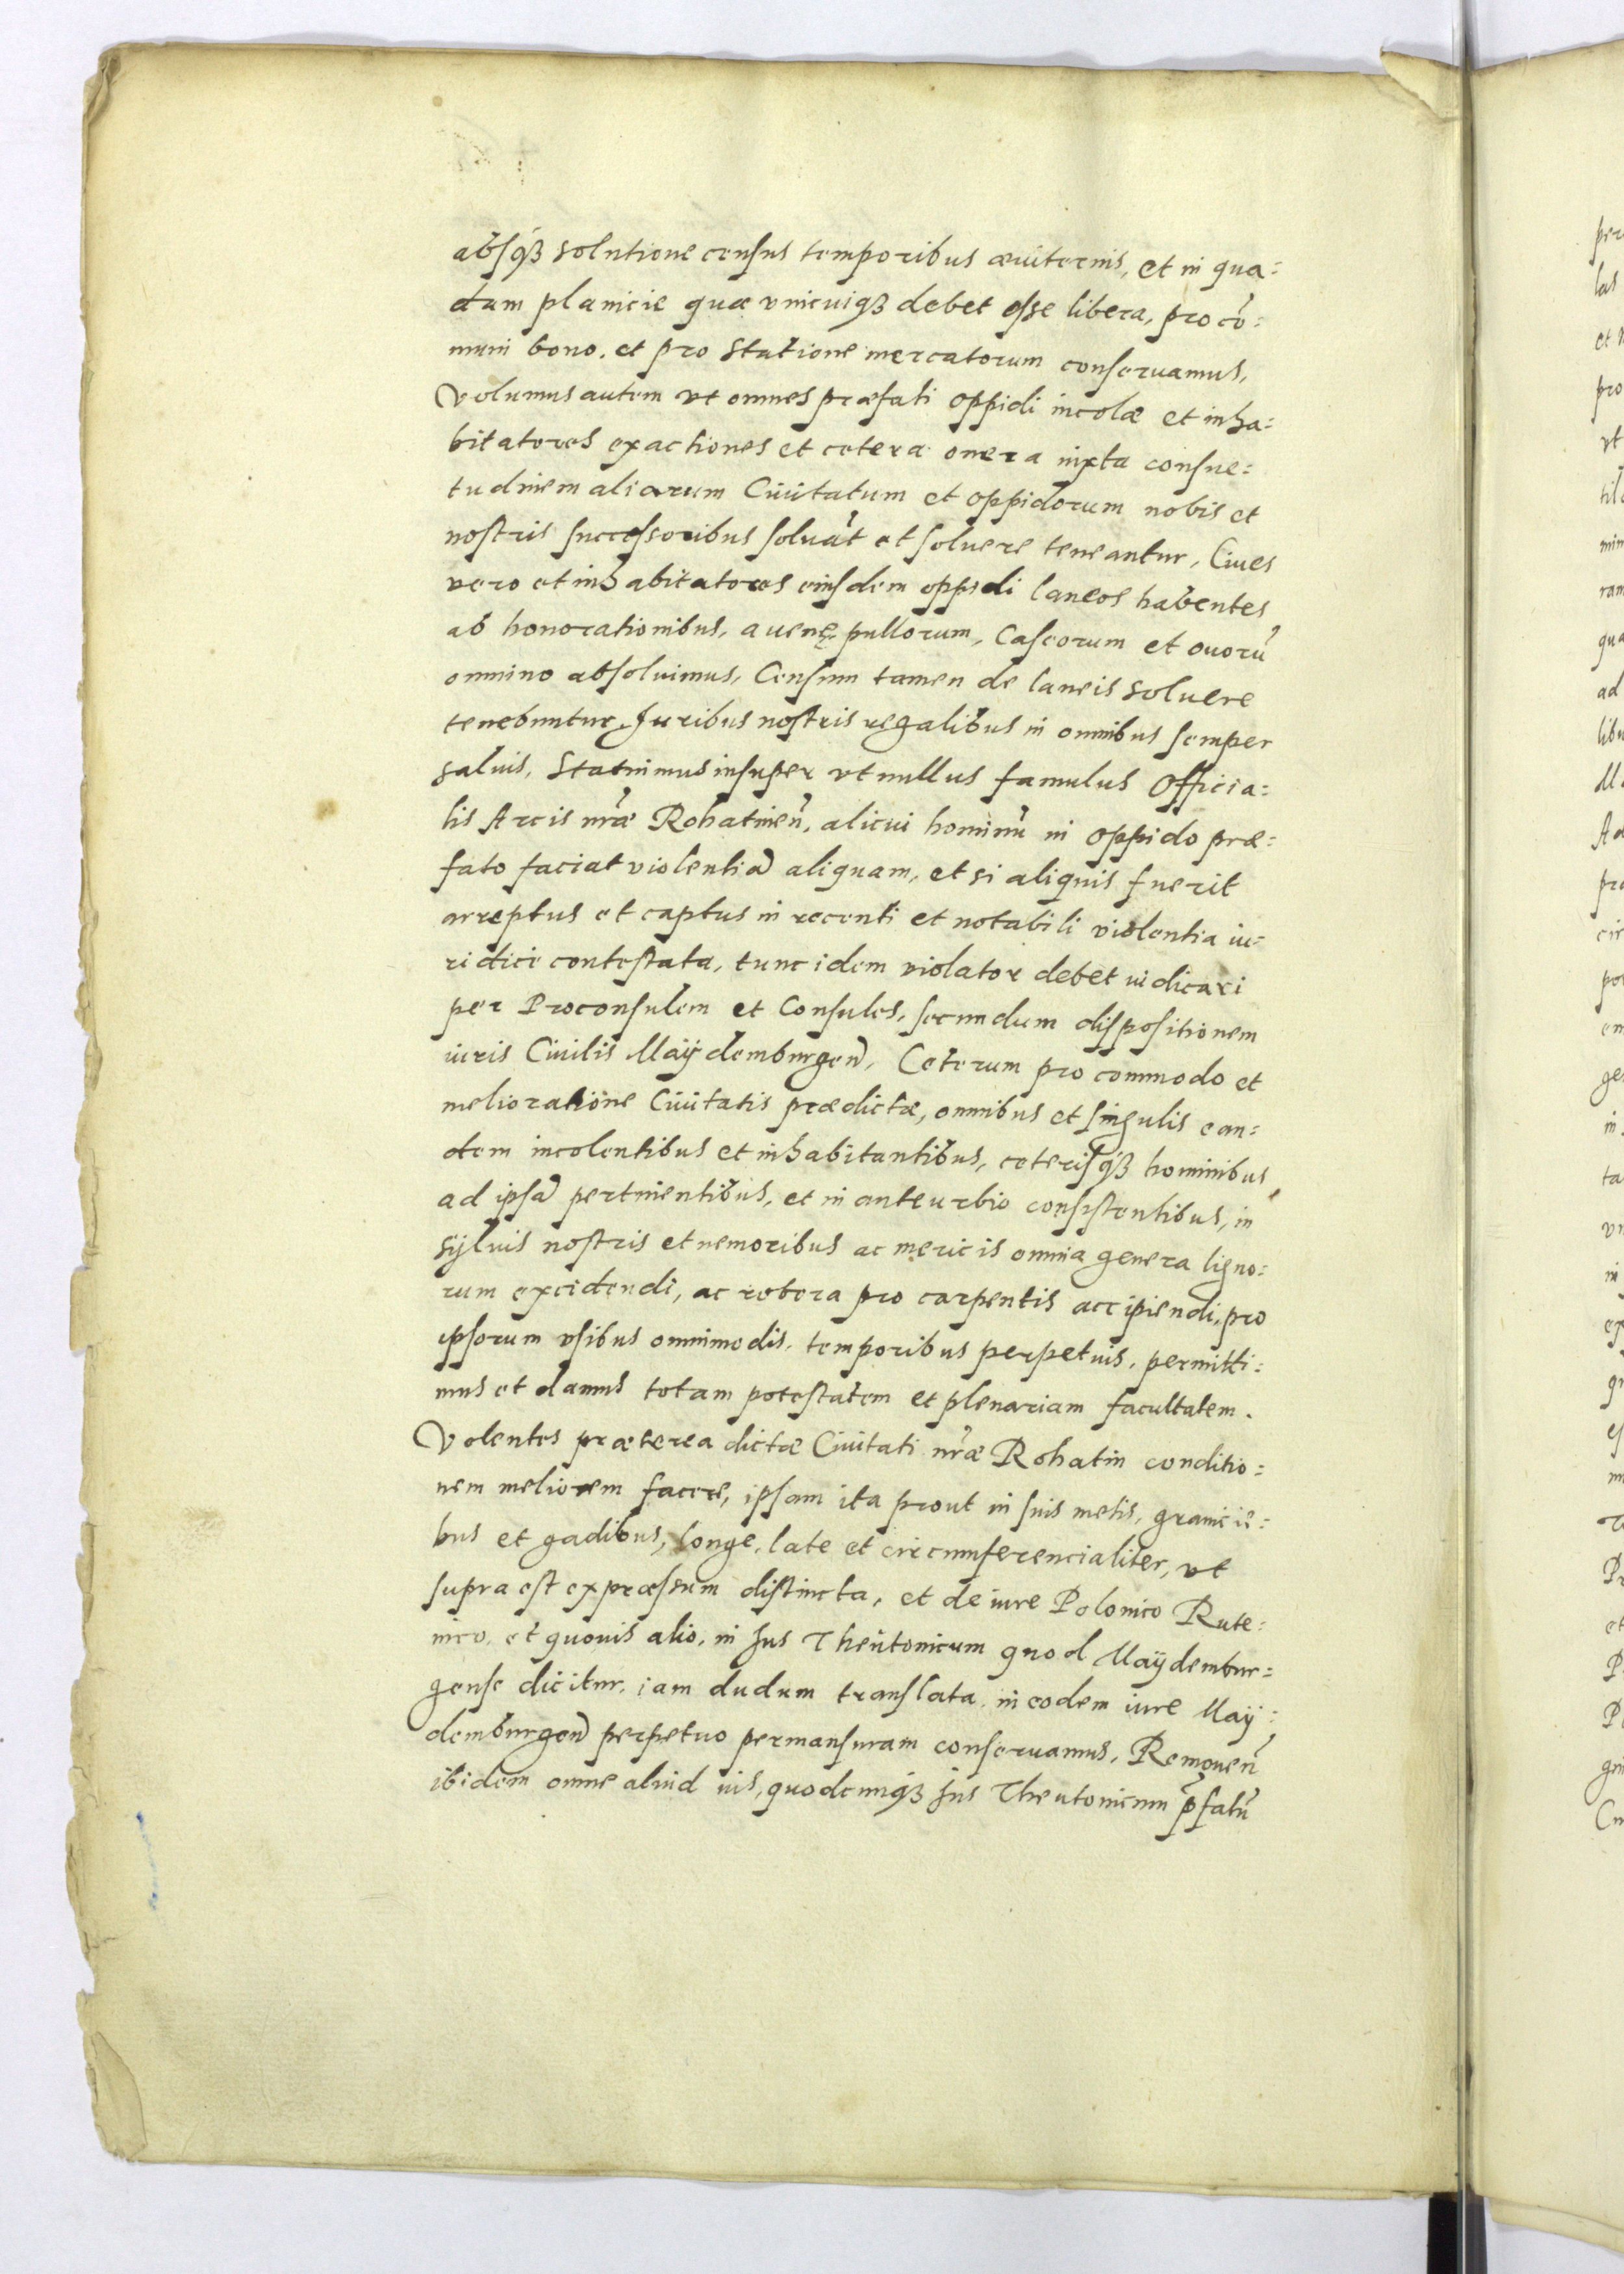 absq₃ solutione census temporibus æuiternis, et in qua=
dam planicie quæ vnicuiq₃ debet esse libera, pro cō=
muni bono, et pro statione mercatorum conseruamus,
Volumus autem vt omnes præfati oppidi incolæ et inha=
bitatores exactiones et cetera onera iuxta consue=
tudinem aliarum Ciuitatum et oppidorum nobis et
nostris successoribus soluāt et soluere teneantur, Ciues
vero et inhabitatores eiusdem oppidi laneos habentes
ab honorationibus, auenę, pullorum, Caseorum et ouorū
omnino absoluimus, Censum tamen de laneis soluere
tenebuntur, Juribus nostris regalibus in omnibus semper
saluis, Statuimus insuper vt nullus famulus Officia=
lis Arcis nr̄æ Rohatineñ, alicui hominū in oppido præ=
fato faciat violentiā aliquam, et si aliquis fuerit
arreptus et captus in recenti et notabili violentia iu=
ridice contestata, tunc idem violator debet iudicari
per Proconsulem et Consules, secundum dispositionem
iuris Ciuilis Maÿdemburgeñ, Ceterum pro commodo et
melioratione Ciuitatis prædictæ, omnibus et singulis ean=
dem incolentibus et inhabitantibus, ceterisq₃ hominibus
ad ipsā pertinentibus, et in anteurbio consistentibus, in
sÿluis nostris et nemoribus ac mericis omnia genera ligno=
rum excidendi, ac robora pro carpentis accipiendi, pro
ipsorum vsibus omnimodis, temporibus perpetuis, permitti=
mus et damus totam potestatem et plenariam facultatem.
Volentes præterea dictæ Ciuitati nr̄æ Rohatin conditio=
nem meliorem facere, ipsam ita prout in suis metis, granicie=
bus et gadibus, longe, late et circumferencialiter, vt
supra est expræssum distincta, et de iure Polonico Rute=
nico, et quouis alio, in Jus Theutonicum quod Maÿdembur=
gense dicitur, iam dudum translata, in eodem iure Maÿ=
demburgeñ perpetuo permansuram conseruamus, Remoueñ
ibidem omne aliud ius, quodcunq₃ Jus Theutonicum p̄fatū